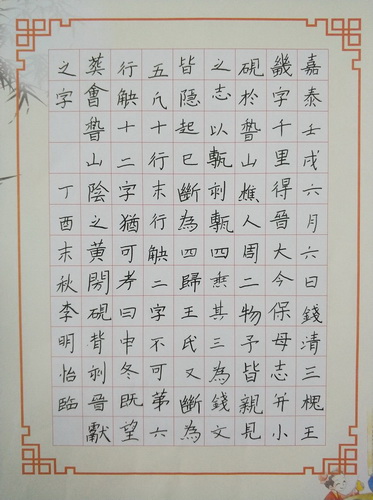 嘉泰壬戌六月六日錢清三槐王
畿字千里得晉大令保母志并小
硯於稽山樵人周二物予皆親見
之志以甎刻甎四垂其三為錢文
皆隱起已斷為四歸王氏又斷為
五凡十行末行缺二字不可第六
行缺十二字猶可考曰中冬既望
葬會稽山陰之黃閍硯背刻晉獻
之字
丁酉末秋李明怡臨